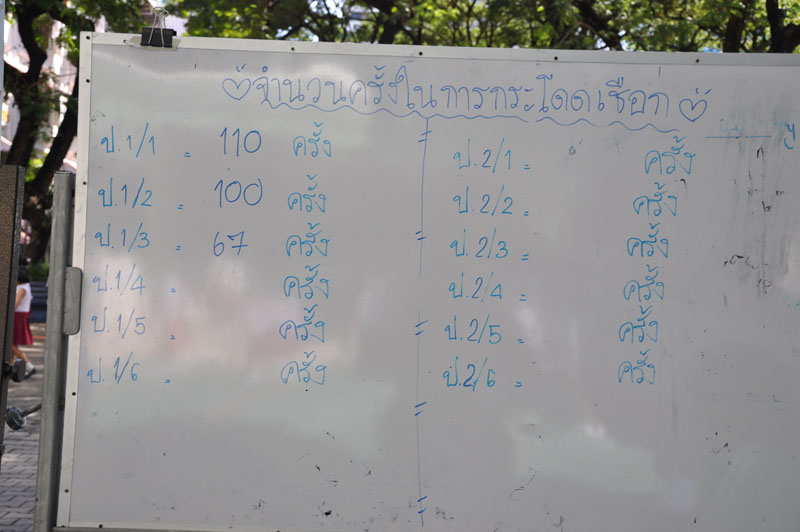 จำนวนครั้งในการกระโดดเชือก
ป.1/1 = 110 ครั้ง
ป.1/2 = 100 ครั้ง
ป.1/3 = 67 ครั้ง
ป.1/4 = ครั้ง
ป.1/5 = ครั้ง
ป.1/6 = ครั้ง
ป.2/1 = ครั้ง
ป.2/2 = ครั้ง
ป.2/3 = ครั้ง
ป.2/4 = ครั้ง
ป.2/5 = ครั้ง
ป.2/6 = ครั้ง